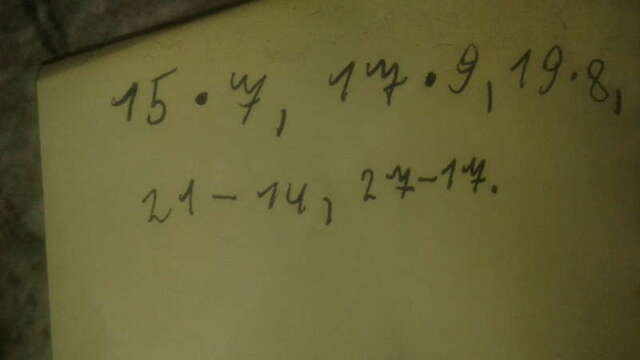 15 · 7, 17 · 9, 19 · 8,
21 – 14, 27 – 17.